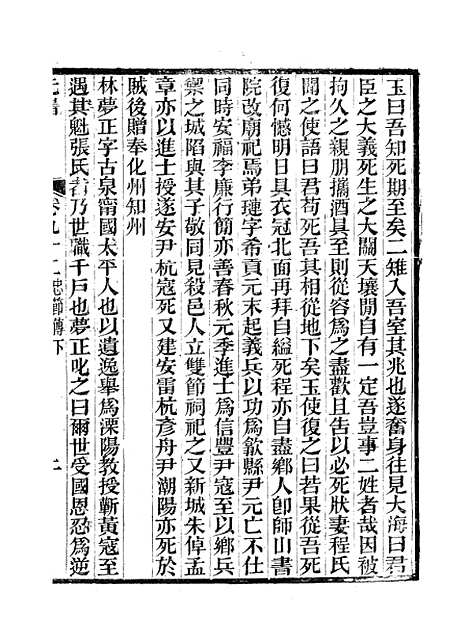 玉曰吾知死期至矣二雉入吾室其兆也遂奮身往見大海曰君
臣之大義死生之大關天壤閒自有一定吾豈事二姓者哉因被
拘久之親朋攜酒具至則從容爲之盡歡且告以必死狀妻程氏
聞之使語曰君苟死吾其相從地下矣玉使復之曰若果從吾死
復何憾明日具衣冠北面再拜自縊死程亦自盡鄉人卽師山書
院改廟祀焉弟璉字希貢元末起義兵以功爲歙縣尹元亡不仕
同時安福李廉行簡亦善春秋元季進士爲信豐尹寇至以鄉兵
禦之城陷與其子敬同見殺邑人立雙節祠祀之又新城朱倬孟
章亦以進士授遂安尹杭寇死又建安雷杭彥舟尹潮陽亦死於
賊後贈奉化州知州
林夢正字古泉甯國太平人也以遺逸舉爲溧陽教授蘄黃寇至
遇其魁張氏者乃世職千戶也夢正叱之曰爾世受國恩忍爲逆
元書 卷九十二忠節傳下 上